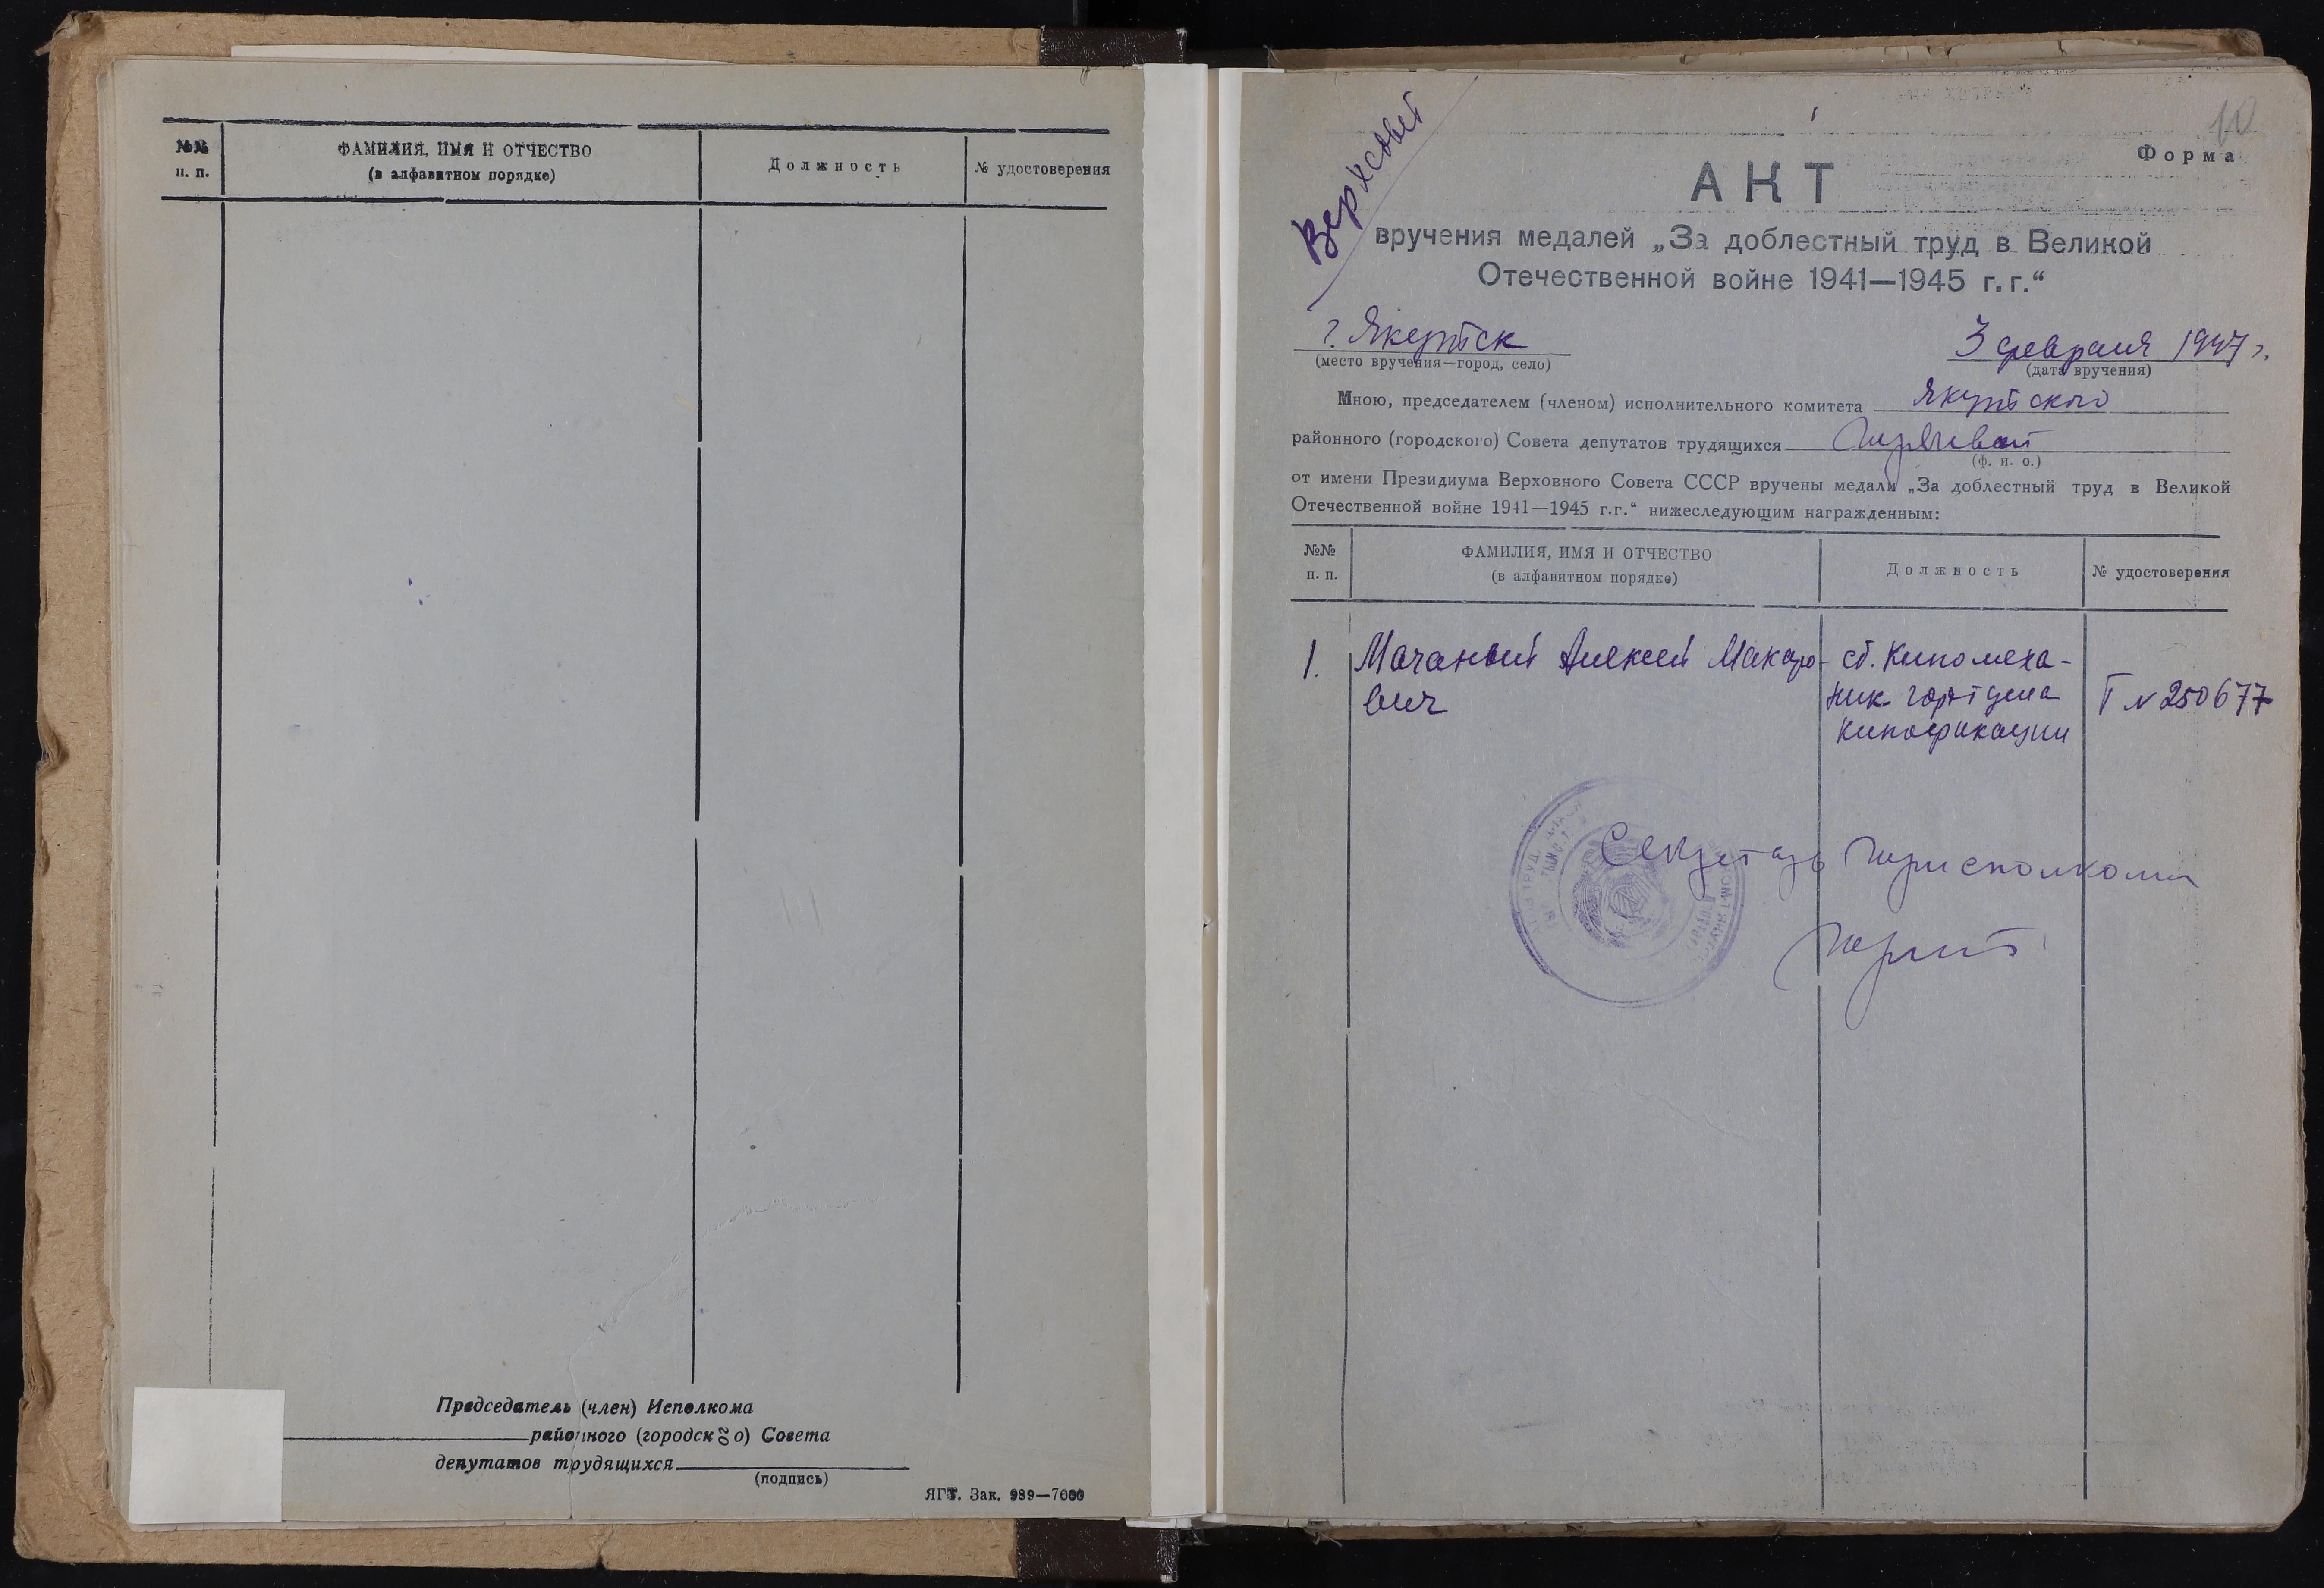 №№
п. п.
ФАМИЛИЯ, ИМЯ И ОТЧЕСТВО
(в алфавитном порядке)
Должность
№ удостоверения
Председатель (член) Исполкома
районного (городского) Совета
депутатов трудящихся
(подпись)
ЯГТ. Зак. 989—7000
10
Верхсовет
Форма
АКТ
вручения медалей „За доблестный труд в Великой
Отечественной войне 1941—1945 г.г.“
г. Якутск
3 февраля 1947 г.
(место вручения—город, село)
(дата вручения)
Мною, председателем (членом) исполнительного комитета Якутского
районного (городского) Совета депутатов трудящихся
(ф. и. о.)
от имени Президиума Верховного Совета СССР вручены медали „За доблестный труд в Великой
Отечественной войне 1941—1945 г.г.“ нижеследующим награжденным:
№№
п. п.
ФАМИЛИЯ, ИМЯ И ОТЧЕСТВО
(в алфавитном порядке)
Должность
№ удостоверения
1. Мачаный Алексей Макаро-
вич
ст. Киномеха-
ник
Кинофикации
Т № 250677
Секретарь Горисполкома